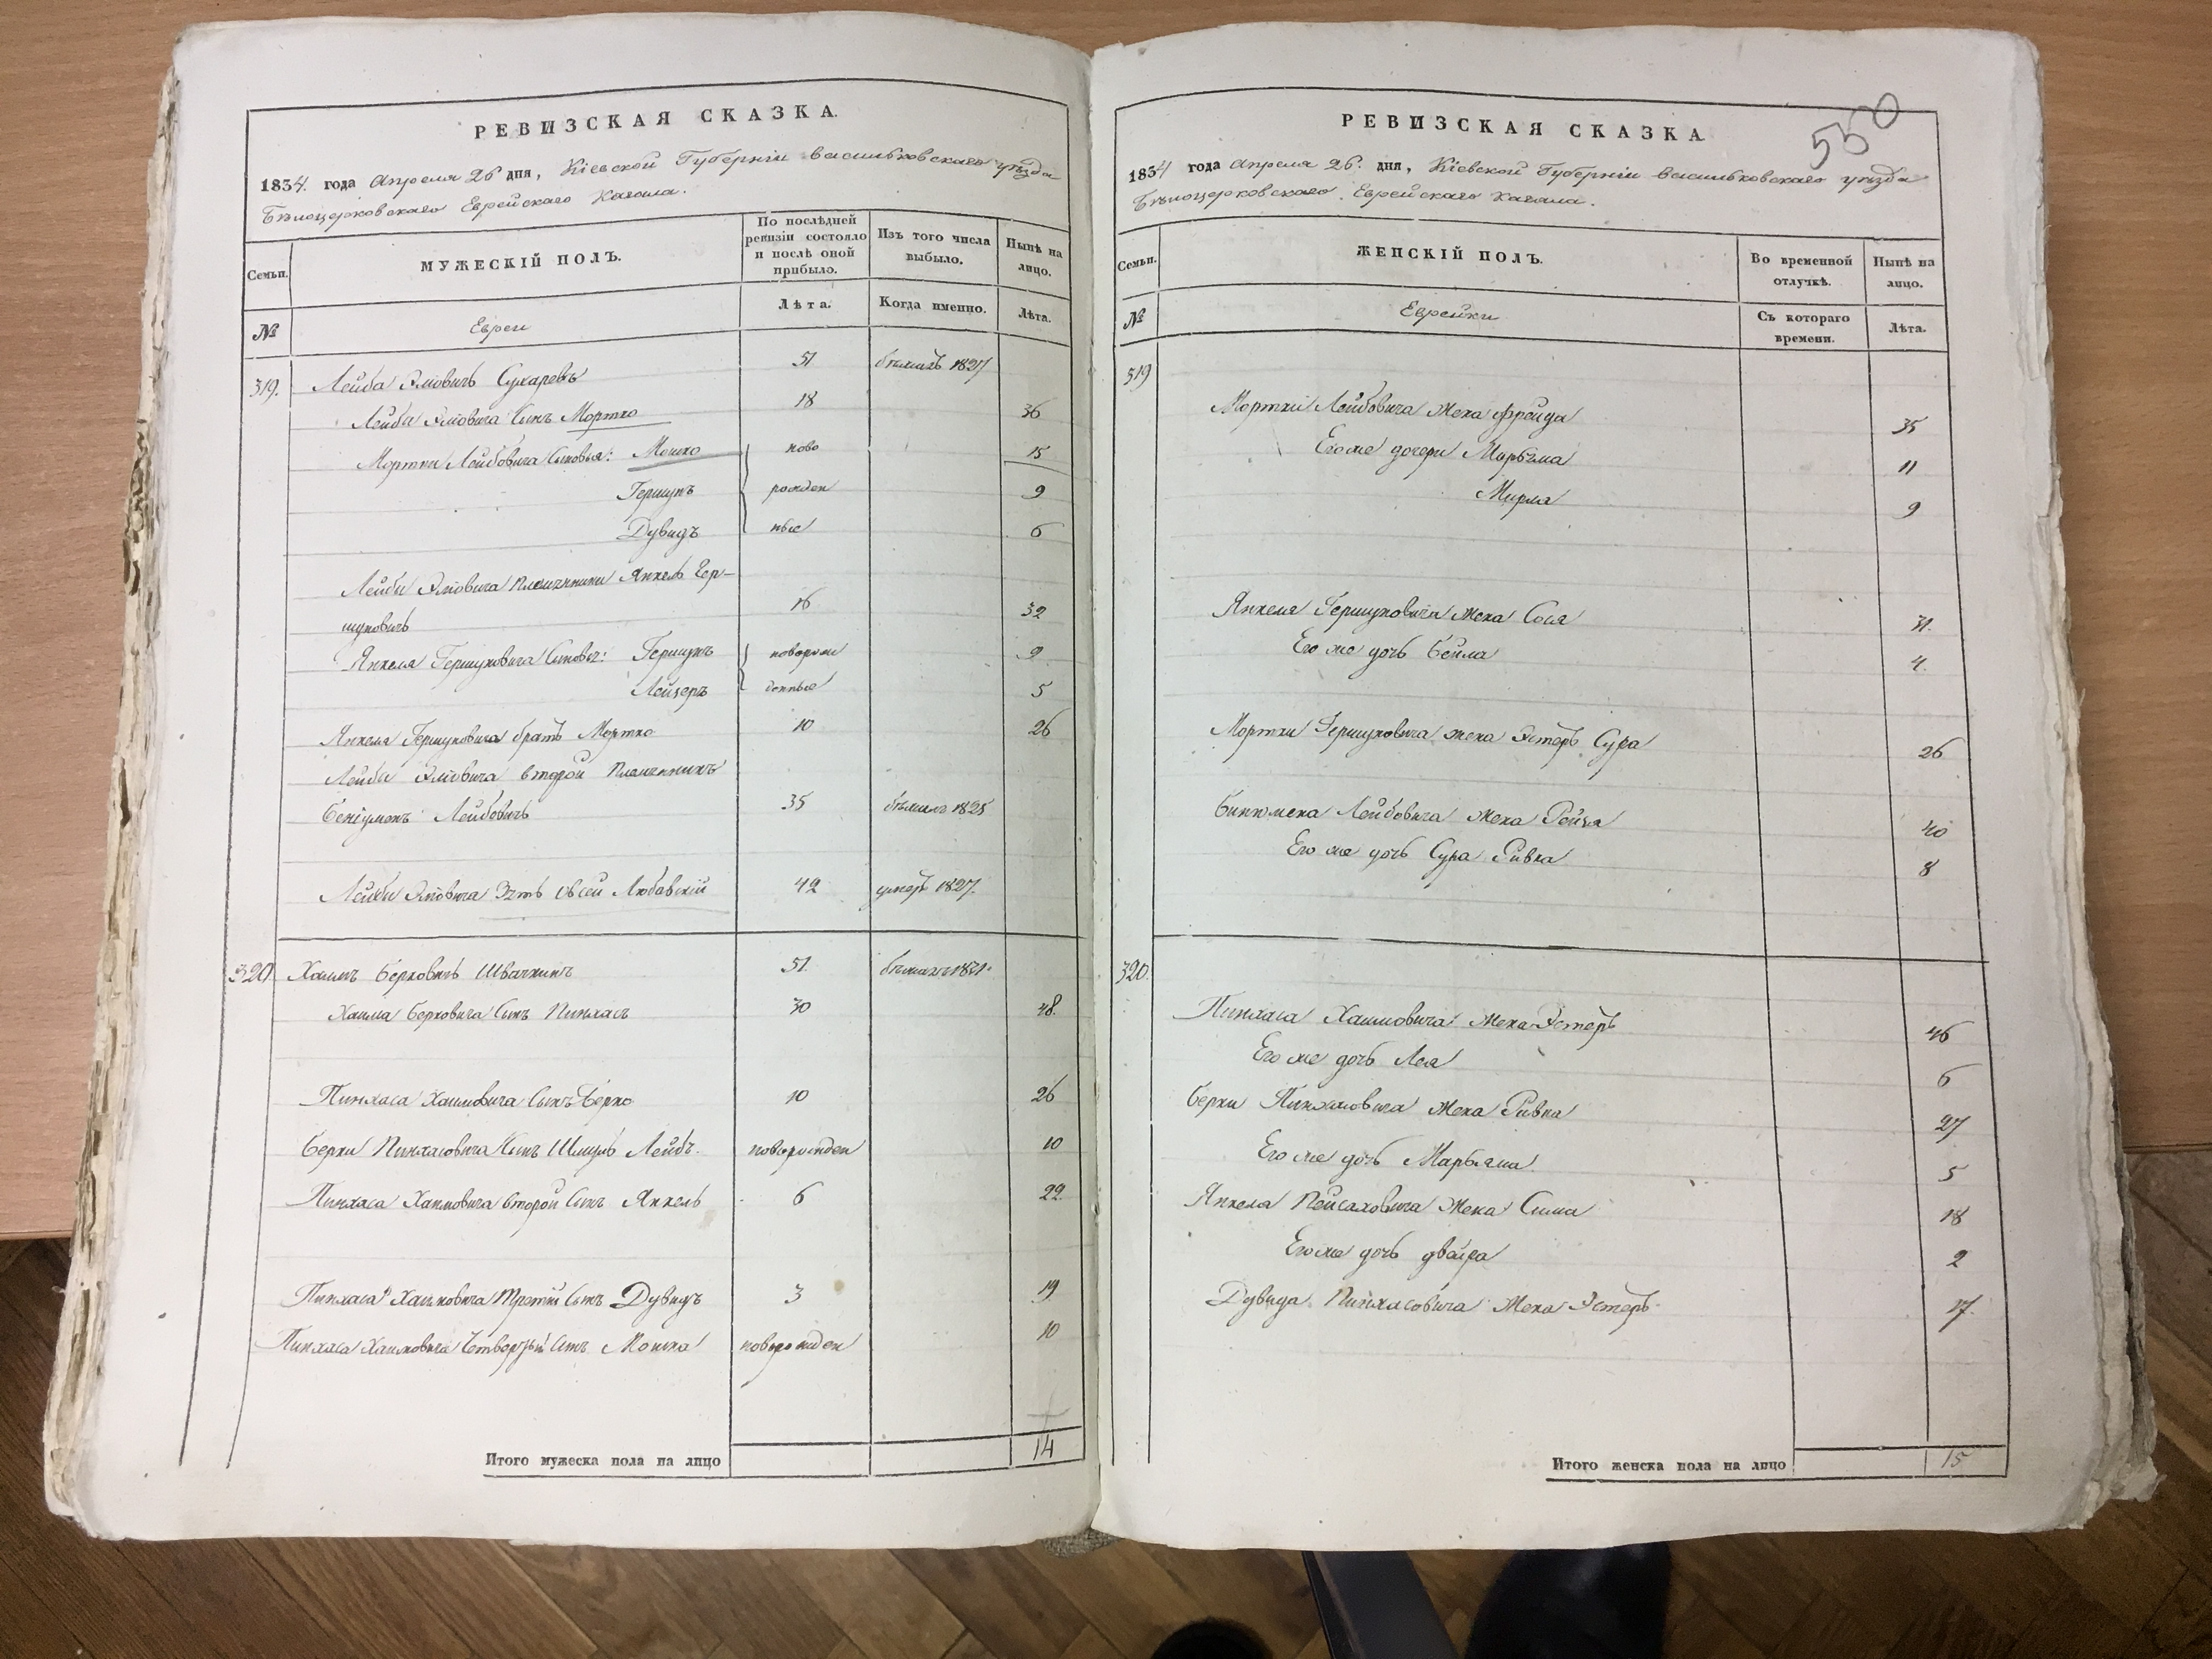 РЕВИЗСКАЯ СКАЗКА.
1834. года Апреля 26 дня, Кіевской Губерніи Васильковскаго уѣзда
Бѣлоцерковскаго Еврейскаго Кагала.
Семьи.
МУЖЕСКІЙ ПОЛЪ.
По послѣдней ревизіи состояло и послѣ оной прибыло.
Изъ того числа выбыло.
Нынѣ на лицо.
№
Евреи
Лѣта.
Когда именно.
Лѣта.
319. Лейба Эліовичъ Сухаревъ 51 бѣжалъ 1827
Лейбы Эліовича Сынъ Мортко 18 36
Мортки Лейбовича Сыновья: Мошко ново 15
Гершунъ рожден 9
Дувидъ ные 6
Лейбы Эліовича племянники Янкель Гер-
шуновичъ 16 32
Янкеля Гершуновича Сыновья: Гершунъ новорож 9
Лейзеръ денные 5
Янкеля Гершуновича братъ Мортко 10 26
Лейбы Эліовича второй племянникъ
Беніуменъ Лейбовичъ 35 бѣжалъ 1825
Лейбы Эліовича Зять Овсей Любавскій 42 умеръ 1827.
320. Хаимъ Берковичъ Швачкинъ 51. бѣжалъ 1831.
Хаима Берковича Сынъ Пинхасъ 30 48.
Пинхаса Хаимовича Сынъ Берко 10 26
Берки Пинхасовича Сынъ Шмуль Лейбъ. новорожден 10
Пинхаса Хаимовича второй Сынъ Янкель 6 22.
Пинхаса Хаимовича Третій Сынъ Дувидъ 3 19
Пинхаса Хаимовича Четвертый Сынъ Мошка новорожден 10
Итого мужеска пола на лицо 14
550
РЕВИЗСКАЯ СКАЗКА
1834 года Апреля 26. дня, Кіевской Губерніи Васильковскаго уѣзда
Бѣлоцерковскаго Еврейскаго Кагала.
Семьи.
ЖЕНСКІЙ ПОЛЪ.
Во временной отлучкѣ.
Нынѣ на лицо.
№
Еврейки
Съ котораго времени.
Лѣта.
319
Мортки Лейбовича жена Фрейда 35
Его же дочери Марьяма 11
Мирля 9
Янкеля Гершуновича жена Сося 31.
Его же дочь Бейла 4.
Мортки Гершуновича жена Эстеръ Сура 26
Бинюмена Лейбовича жена Рейзя 40
Его же дочь Сура Ривка 8
320.
Пинхаса Хаимовича жена Эстеръ 46
Его же дочь Лея 6
Берки Пинхасовича жена Ривка 27
Его же дочь Марьяма 5
Янкеля Пейсаховича жена Сима 18
Его же дочь двойра 2
Дувида Пинхасовича жена Эстеръ. 17.
Итого женска пола на лицо 15